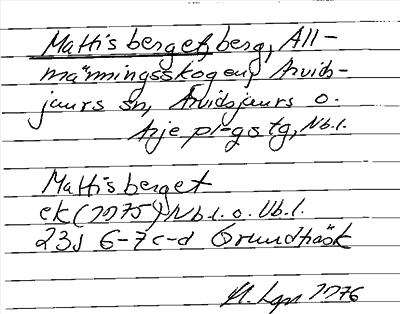 Mattisberget, berg, All-
männingsskogen, Arvids-
jaurs sn, Arvidsjaurs o.
Arje pl-gstg, Nb.l.
Mattisberget
ek (1975) Nb.l. o. Vb.l.
23J 6-7 c-d Grundträsk
1976